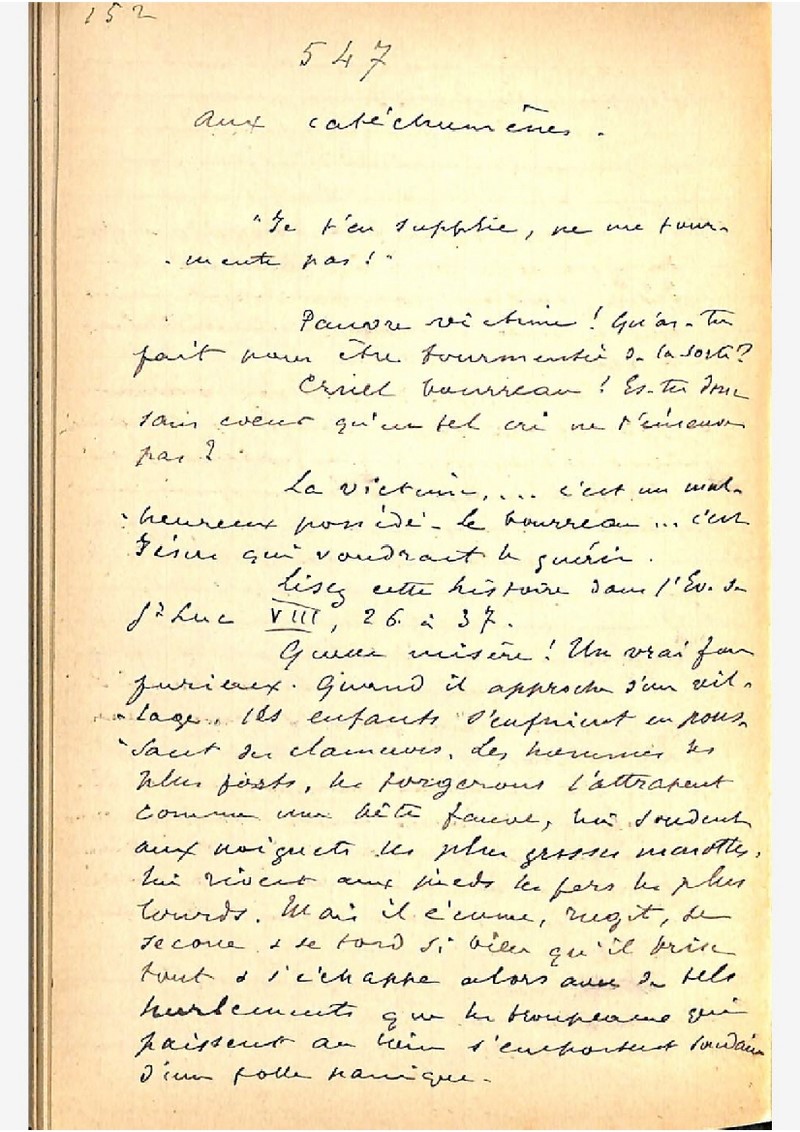 152
547
aux catéchumènes.
"Je t'en supplie, ne me tour-
-mente pas!"
Pauvre victime! Qu'as-tu
fait pour être tourmentée de la sorte?
Cruel bourreau! Es-tu donc
sans coeur qu'un tel cri ne t'émeuve
pas?
La victime,... c'est un mal-
-heureux possédé - Le bourreau... c'est
Jésus qui voudrait le guérir.
Lisez cette histoire dans l'Ev. de
St Luc VIII, 26 à 37.
Quelle misère! Un vrai fou
furieux. Quand il approche d'un vil-
-lage, les enfants s'enfuient en pous-
-sant des clameurs. Les hommes les
plus forts, les forgerons l'attrapent
comme une bête fauve, lui soudent
aux poignets les plus grosses menottes,
lui rivent aux pieds les fers les plus
lourds. Mais il écume, rugit, se
secoue & se tord si bien qu'il brise
tout & s'échappe alors avec de tels
hurlements que les troupeaux qui
paissent au loin s'emportent soudain
d'une folle panique.